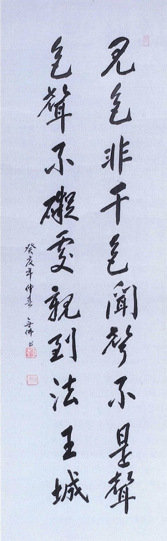 见色非干色闻声不是聲
色聲不礙处親到法王城
癸亥年仲春